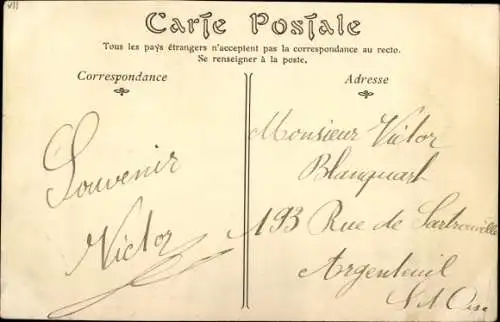 Carte Postale
Tous les pays étrangers n'acceptent pas la correspondance au recto.
Se renseigner à la poste.
Correspondance
Adresse
Souvenir
Victor
Monsieur Victor
Blanquart
193 Rue de Sartrouville
Argenteuil
S. et Oise